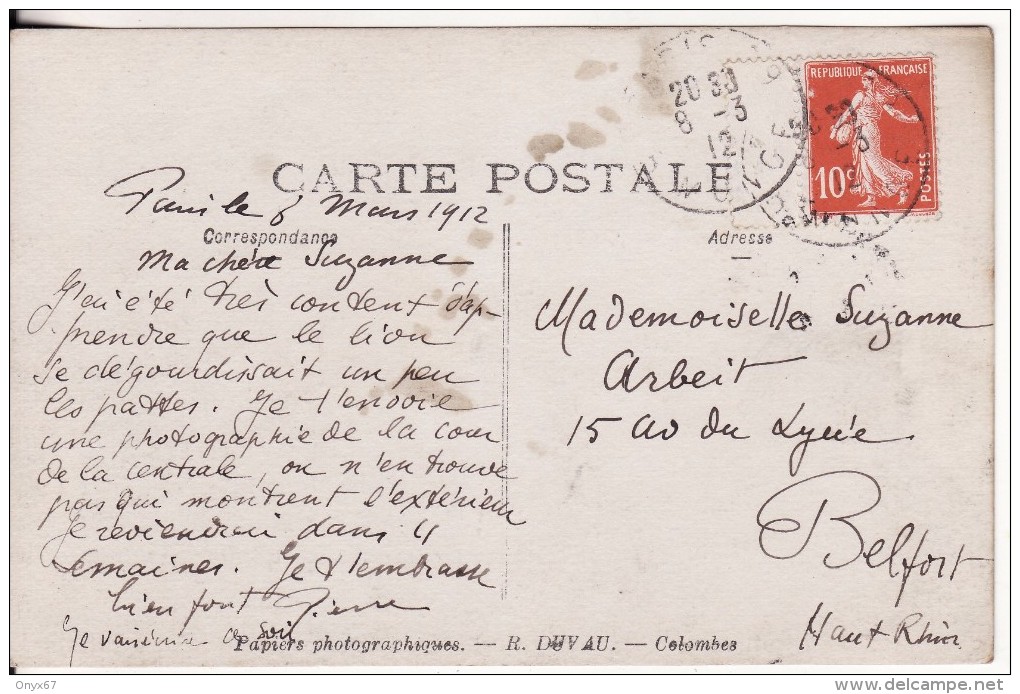 CARTE POSTALE
Paris le 8 Mars 1912
Correspondance
Ma chère Suzanne
J'ai été très content d'ap-
prendre que le lion
se dégourdissait un peu
les pattes. Je t'envoie
une photographie de la cour
de la centrale, on n'en trouve
pas qui montrent l'extérieur
Je reviendrai dans
semaines. Je t'embrasse
bien fort Pierre
Je ce soir
Papiers photographiques. — R. DUVAU. — Colombes
RÉPUBLIQUE FRANÇAISE
10c
POSTES
20 30
8 - 3
12
Adresse
Mademoiselle Suzanne
Arbeit
15 av du Lycée
Belfort
Haut Rhin
Onyx67
delcampe.net